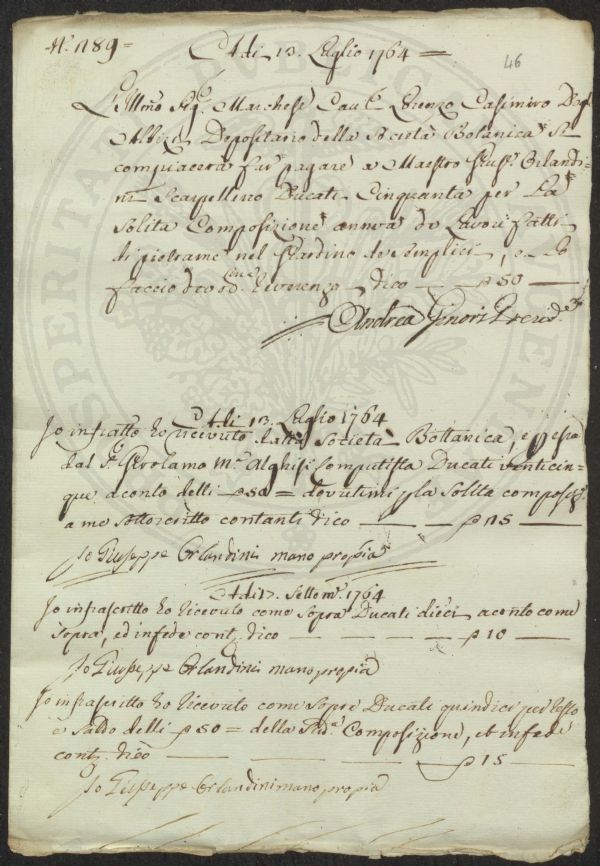 N.º 189=
Adi 13. Luglio 1764 =
46
L'Illmo Sigr. Marchese Cavr. Lorenzo Casimiro Degl'
Albizi Depositario della Società Botanica Si
compiacerà far pagare a Maestro Giusee. Orlandi-
ni Scarpellino Ducati Cinquanta per La
Solita Composizione annua de Lavori fatti
di pietrame nel Giardino de Semplici, e Le
faccio devoa. Riverenza dico — — ₽ 50 —
Andrea Ginori
Adi 13. Luglio 1764
Io infratto. ho ricevuto dalla Società Bottanica, e per essa
dal Sr. Girolamo Ma. Alghisi Computista Ducati venticin-
que aconto delli ₽ 50 = dovutimi p la Solita composize.
a me sottoscritto contanti dico — — — ₽ 25 —
Io Giuseppe Orlandini mano propia
Adi 7. Settembe. 1764
Io infrascritto ho ricevuto come Sopra Ducati dieci aconto come
Sopra, ed in fede conti. dico — — — — ₽ 10 —
Io Giuseppe Orlandini mano propia
Io infrascritto ho ricevuto come Sopra Ducati quindici per resto
e Saldo delli ₽ 50 = della Suda. Composizione, et in fede
conti. dico — — — — — ₽ 15 —
Io Giuseppe Orlandini mano propia